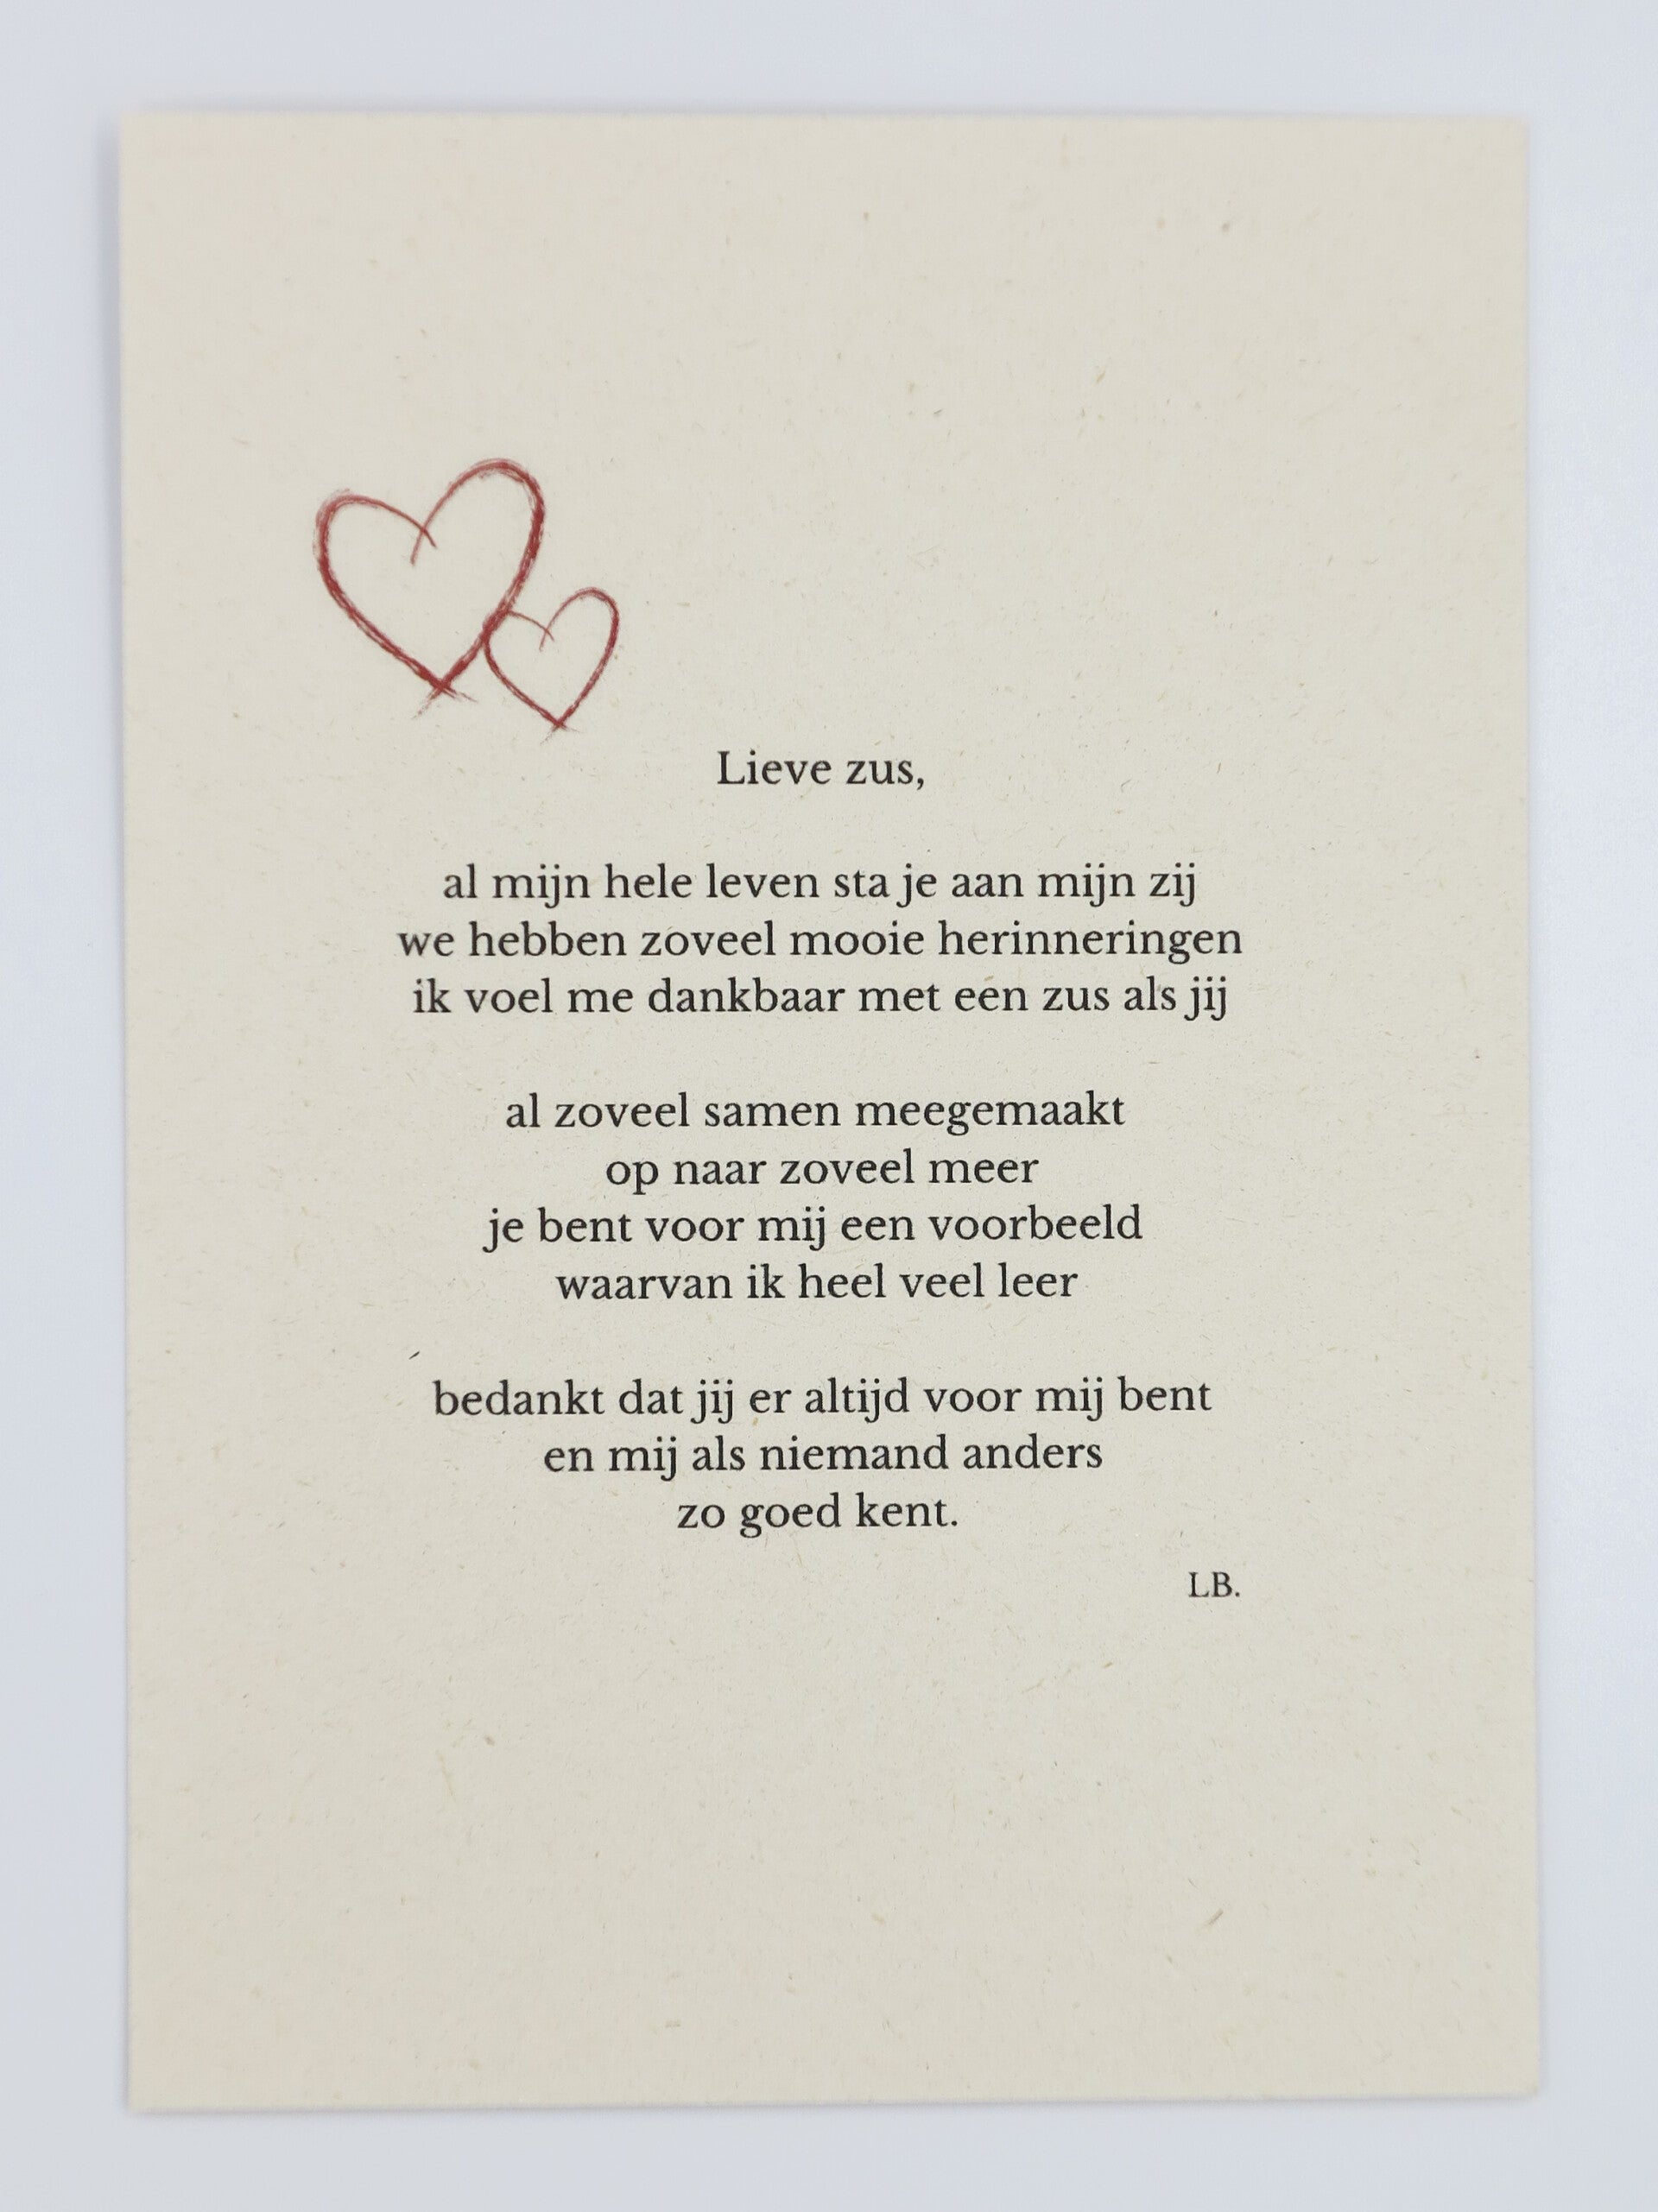 Lieve zus,
al mijn hele leven sta je aan mijn zij
we hebben zoveel mooie herinneringen
ik voel me dankbaar met een zus als jij
al zoveel samen meegemaakt
op naar zoveel meer
je bent voor mij een voorbeeld
waarvan ik heel veel leer
bedankt dat jij er altijd voor mij bent
en mij als niemand anders
zo goed kent.
LB.